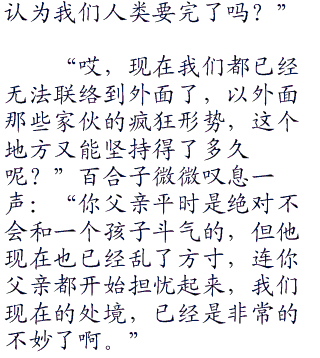 认为我们人类要完了吗？”
“哎，现在我们都已经
无法联络到外面了，以外面
那些家伙的疯狂形势，这个
地方又能坚持得了多久
呢？”百合子微微叹息一
声：“你父亲平时是绝对不
会和一个孩子斗气的，但他
现在也已经乱了方寸，连你
父亲都开始担忧起来，我们
现在的处境，已经是非常的
不妙了啊。”